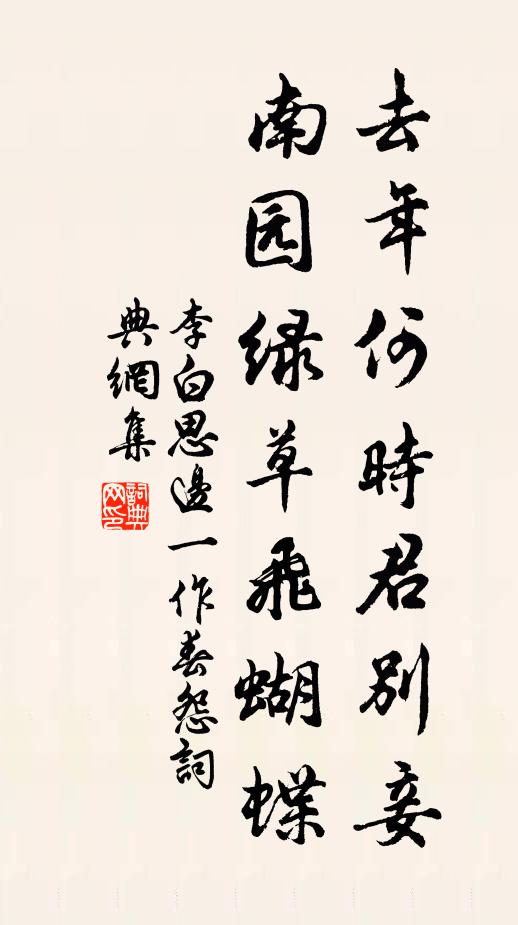 去年何時君别妾
南园绿草飛蝴蝶
李白思邊一作春怨詞
典網集
詞典网印